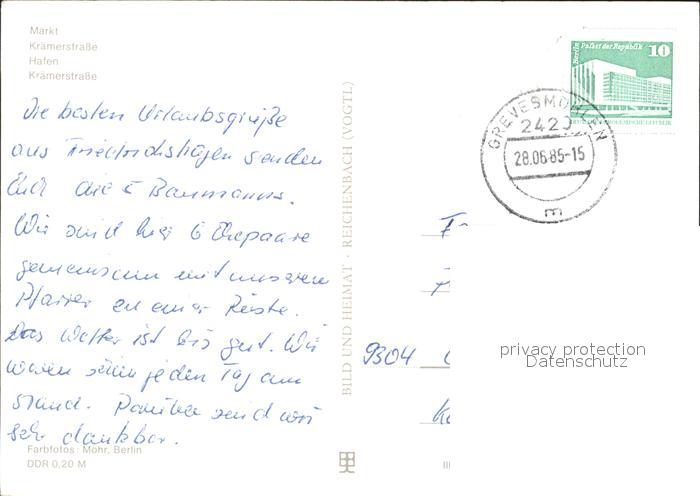 Markt
Krämerstraße
Hafen
Krämerstraße
Die besten Urlaubsgrüße
aus Friedrichshagen senden
Euch die 5 Baumanns.
Wir sind hier 6 Ehepaare
gemeinsam mit unseren
Pfarrer zu einer Rüste.
Das Wetter ist bis gut. Wir
waren schon jeden Tag am
Strand. Darüber sind wir
sehr dankbar.
Farbfotos: Mohr, Berlin
DDR 0,20 M
BILD UND HEIMAT · REICHENBACH (VOGTL)
Berlin Palast der Republik
10
GREVESMÜHLEN
2420
28.06.85-15
m
9304
privacy protection
Datenschutz